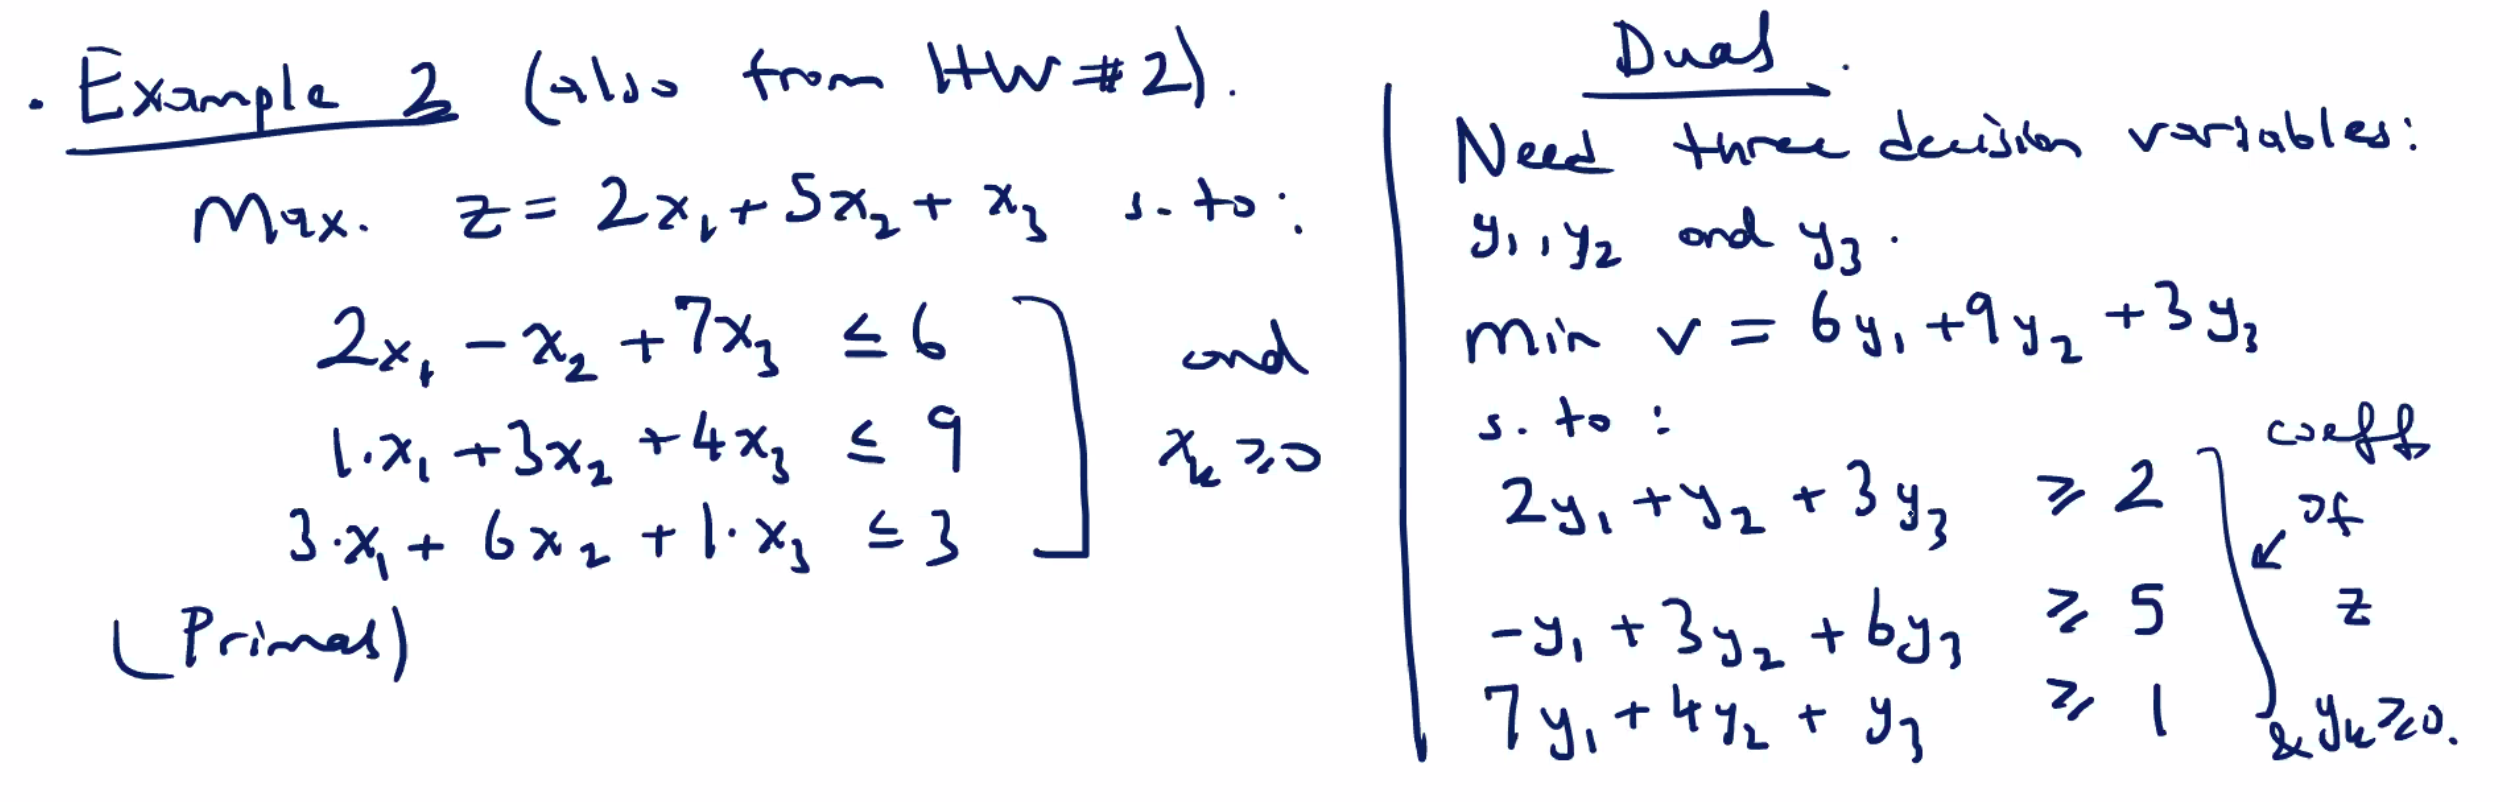 . Example 2 (also from HW #2).
Max. z = 2x₁ + 5x₂ + x₃ s. to:
2x₁ - x₂ + 7x₃ ≤ 6
1·x₁ + 3x₂ + 4x₃ ≤ 9
3·x₁ + 6x₂ + 1·x₃ ≤ 3
and
xₖ ≥ 0
(Primal)
Dual.
Need three decision variables:
y₁, y₂ and y₃.
Min v = 6y₁ + 9y₂ + 3y₃
s. to:
2y₁ + y₂ + 3y₃ ≥ 2
-y₁ + 3y₂ + 6y₃ ≥ 5
7y₁ + 4y₂ + y₃ ≥ 1
coeff
of
z
& yₖ ≥ 0.